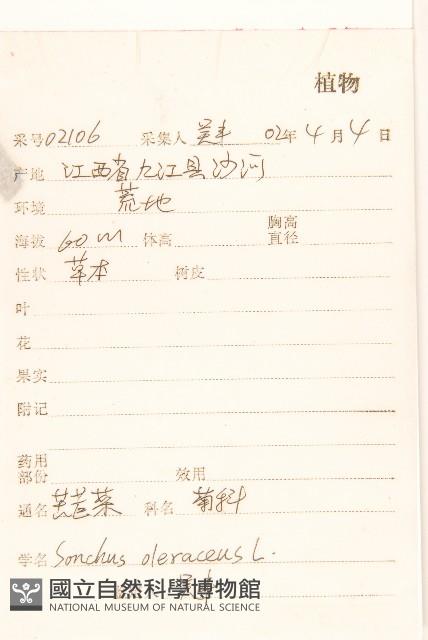 植物
采号 02106 采集人 吴丰 02年 4月 4日
产地 江西省九江县沙河
环境 荒地
海拔 60m 体高 胸高直径
性状 草本 树皮
叶
花
果实
附记
药用部份 效用
通名 苦苣菜 科名 菊科
学名 Sonchus oleraceus L.
國立自然科學博物館
NATIONAL MUSEUM OF NATURAL SCIENCE